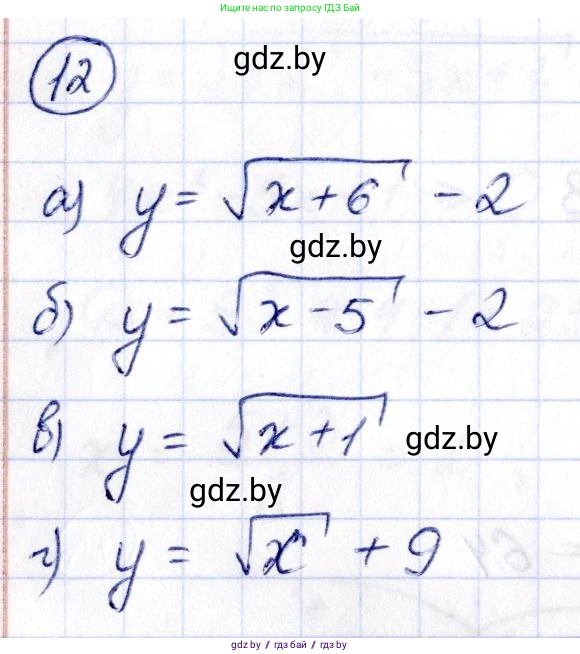 Ищите нас по запросу ГДЗ Бай
12
gdz.by
а) y = √(x+6) - 2
gdz.by
б) y = √(x-5) - 2
в) y = √(x+1)
gdz.by
gdz.by
г) y = √x + 9
gdz.by / гдз бай / gdz.by